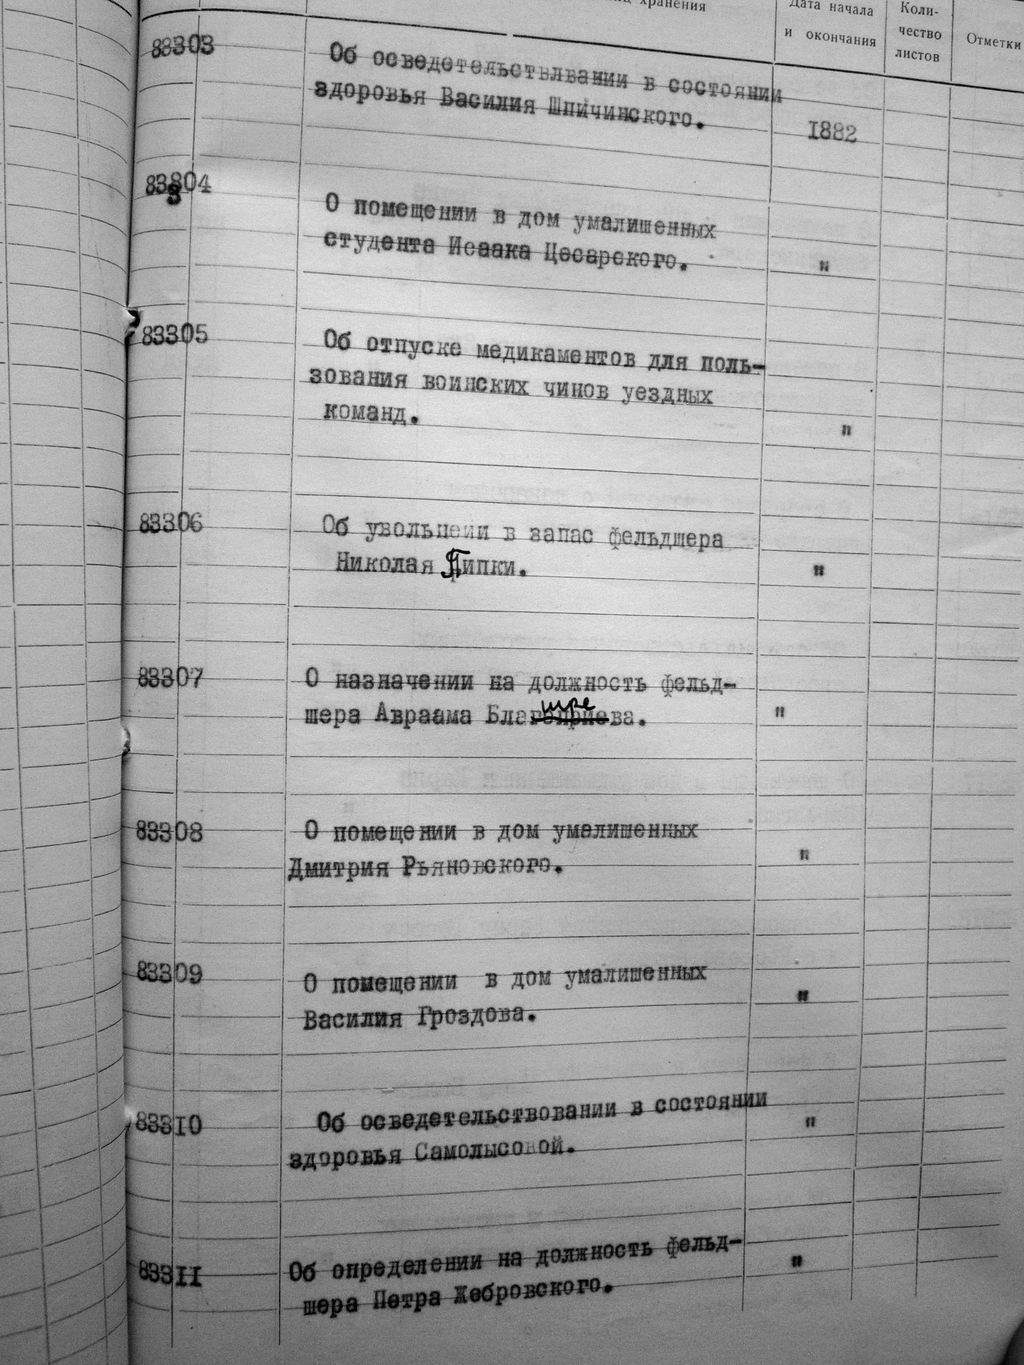 хранения
Дата начала
и окончания
Коли-
чество
листов
Отметки
83303
Об осведетельствлвании в состоянии
здоровья Василия Шпичинского.
1882
83304
О помещении в дом умалишенных
студента Исаака Цесарского.
"
83305
Об отпуске медикаментов для поль-
зования воинских чинов уездных
команд.
"
83306
Об увольнеии в запас фельдшера
Николая Пипки.
"
83307
О назначении на должность фельд-
шера Авраама Благоприева.
шре
"
83308
О помещении в дом умалишенных
Дмитрия Рьяновского.
"
83309
О помещении в дом умалишенных
Василия Гроздова.
"
83310
Об осведетельствовании в состоянии
здоровья Самолысовой.
"
83311
Об определении на должность фельд-
шера Петра Жебровского.
"